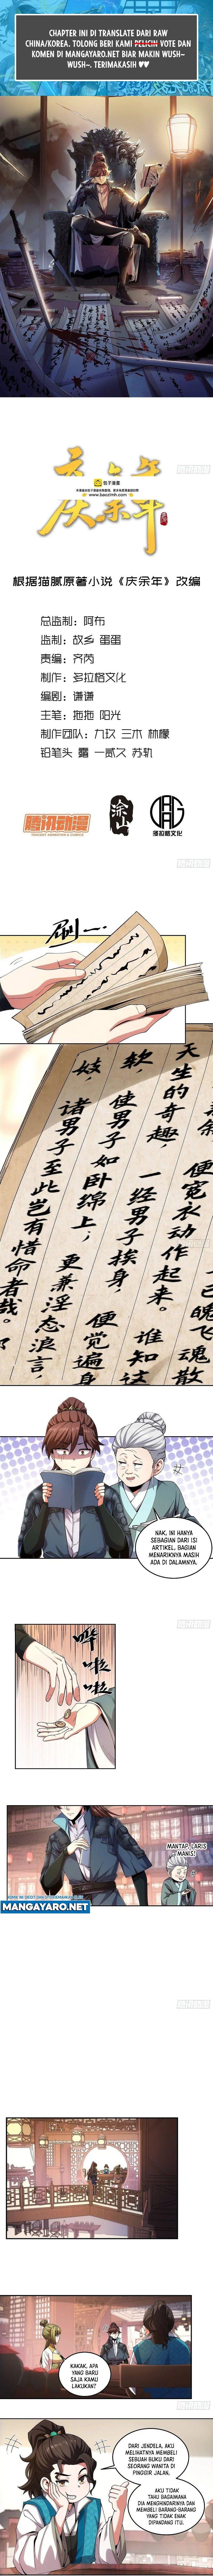 CHAPTER INI DI TRANSLATE DARI RAW
CHINA/KOREA. TOLONG BERI KAMI VOTE DAN
KOMEN DI MANGAYARO.NET BIAR MAKIN WUSH~
WUSH~. TERIMAKASIH ♥♥
庆余年
包子漫画
www.baozimh.com
根据猫腻原著小说《庆余年》改编
总监制：阿布
监制：故乡 蛋蛋
责编：齐芮
制作：多拉格文化
编剧：谦谦
主笔：拖拖 阳光
制作团队：九玖 三木 林檬
铅笔头 露 一贰久 苏轨
腾讯动漫
TENCENT ANIMATION & COMICS
多拉格文化
刷一
天生的奇趣，
一经男子挨身，
软
使男子如卧绵上，
更兼淫态浪言，
妓，
诸男子至此岂有惜命者哉。
便宽衣动作起来。
谁知这
便觉遍身
已魄飞魂散
NAK, INI HANYA
SEBAGIAN DARI ISI
ARTIKEL, BAGIAN
MENARIKNYA MASIH
ADA DI DALAMNYA.
哗啦啦
MANTAP, LARIS
MANIS!
MANGAYARO.NET
KAKAK, APA
YANG BARU
SAJA KAMU
LAKUKAN?
DARI JENDELA, AKU
MELIHATNYA MEMBELI
SEBUAH BUKU DARI
SEORANG WANITA DI
PINGGIR JALAN.
AKU TIDAK
TAHU BAGAIMANA
DIA MENGHINDARINYA DAN
MEMBELI BARANG-BARANG
YANG TIDAK ENAK
DIPANDANG ITU.